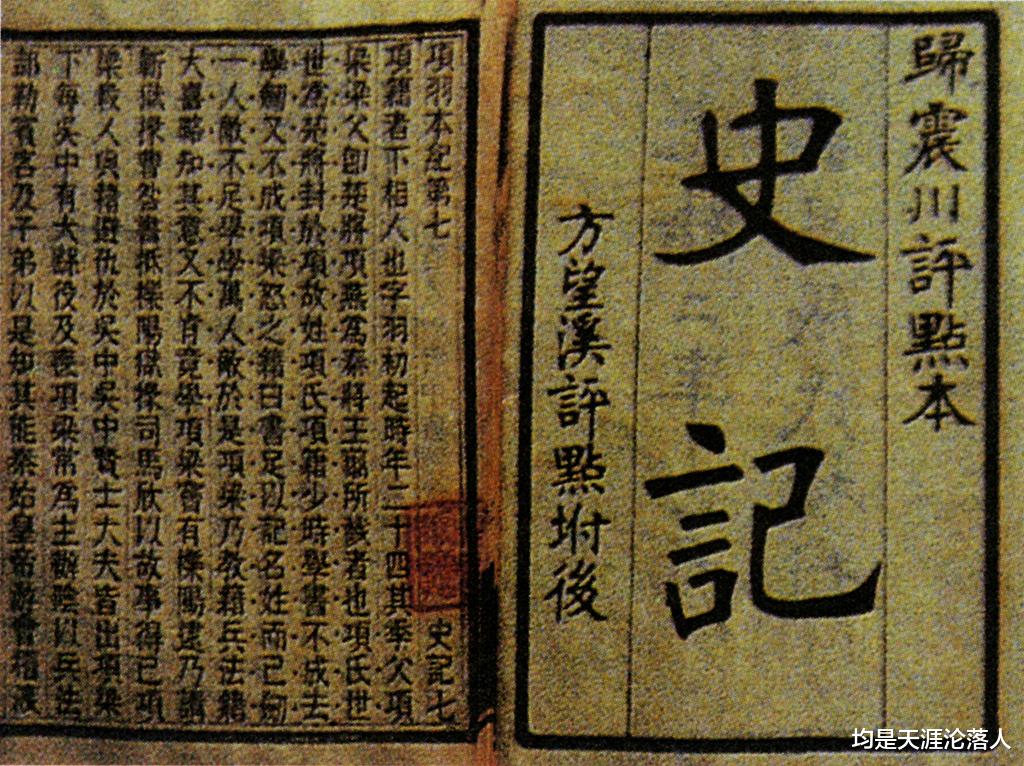 歸震川評點本
史記
方望溪評點坿後
項羽本紀第七 史記七
項籍者下相人也字羽初起時年二十四其季父項
梁梁父即楚將項燕爲秦將王翦所戮者也項氏世
世爲楚將封於項故姓項氏項籍少時學書不成去
學劒又不成項梁怒之籍曰書足以記名姓而已劒
一人敵不足學學萬人敵於是項梁乃教籍兵法籍
大喜略知其意又不肯竟學項梁嘗有櫟陽逮乃請
蘄獄掾曹咎書抵櫟陽獄掾司馬欣以故事得已項
梁殺人與籍避仇於吳中吳中賢士大夫皆出項梁
下每吳中有大繇役及喪項梁常爲主辦陰以兵法
部勒賓客及子弟以是知其能秦始皇帝游會稽渡
均是天涯沦落人